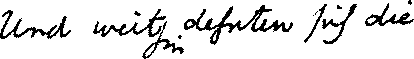 Und weithin dehnten sich die